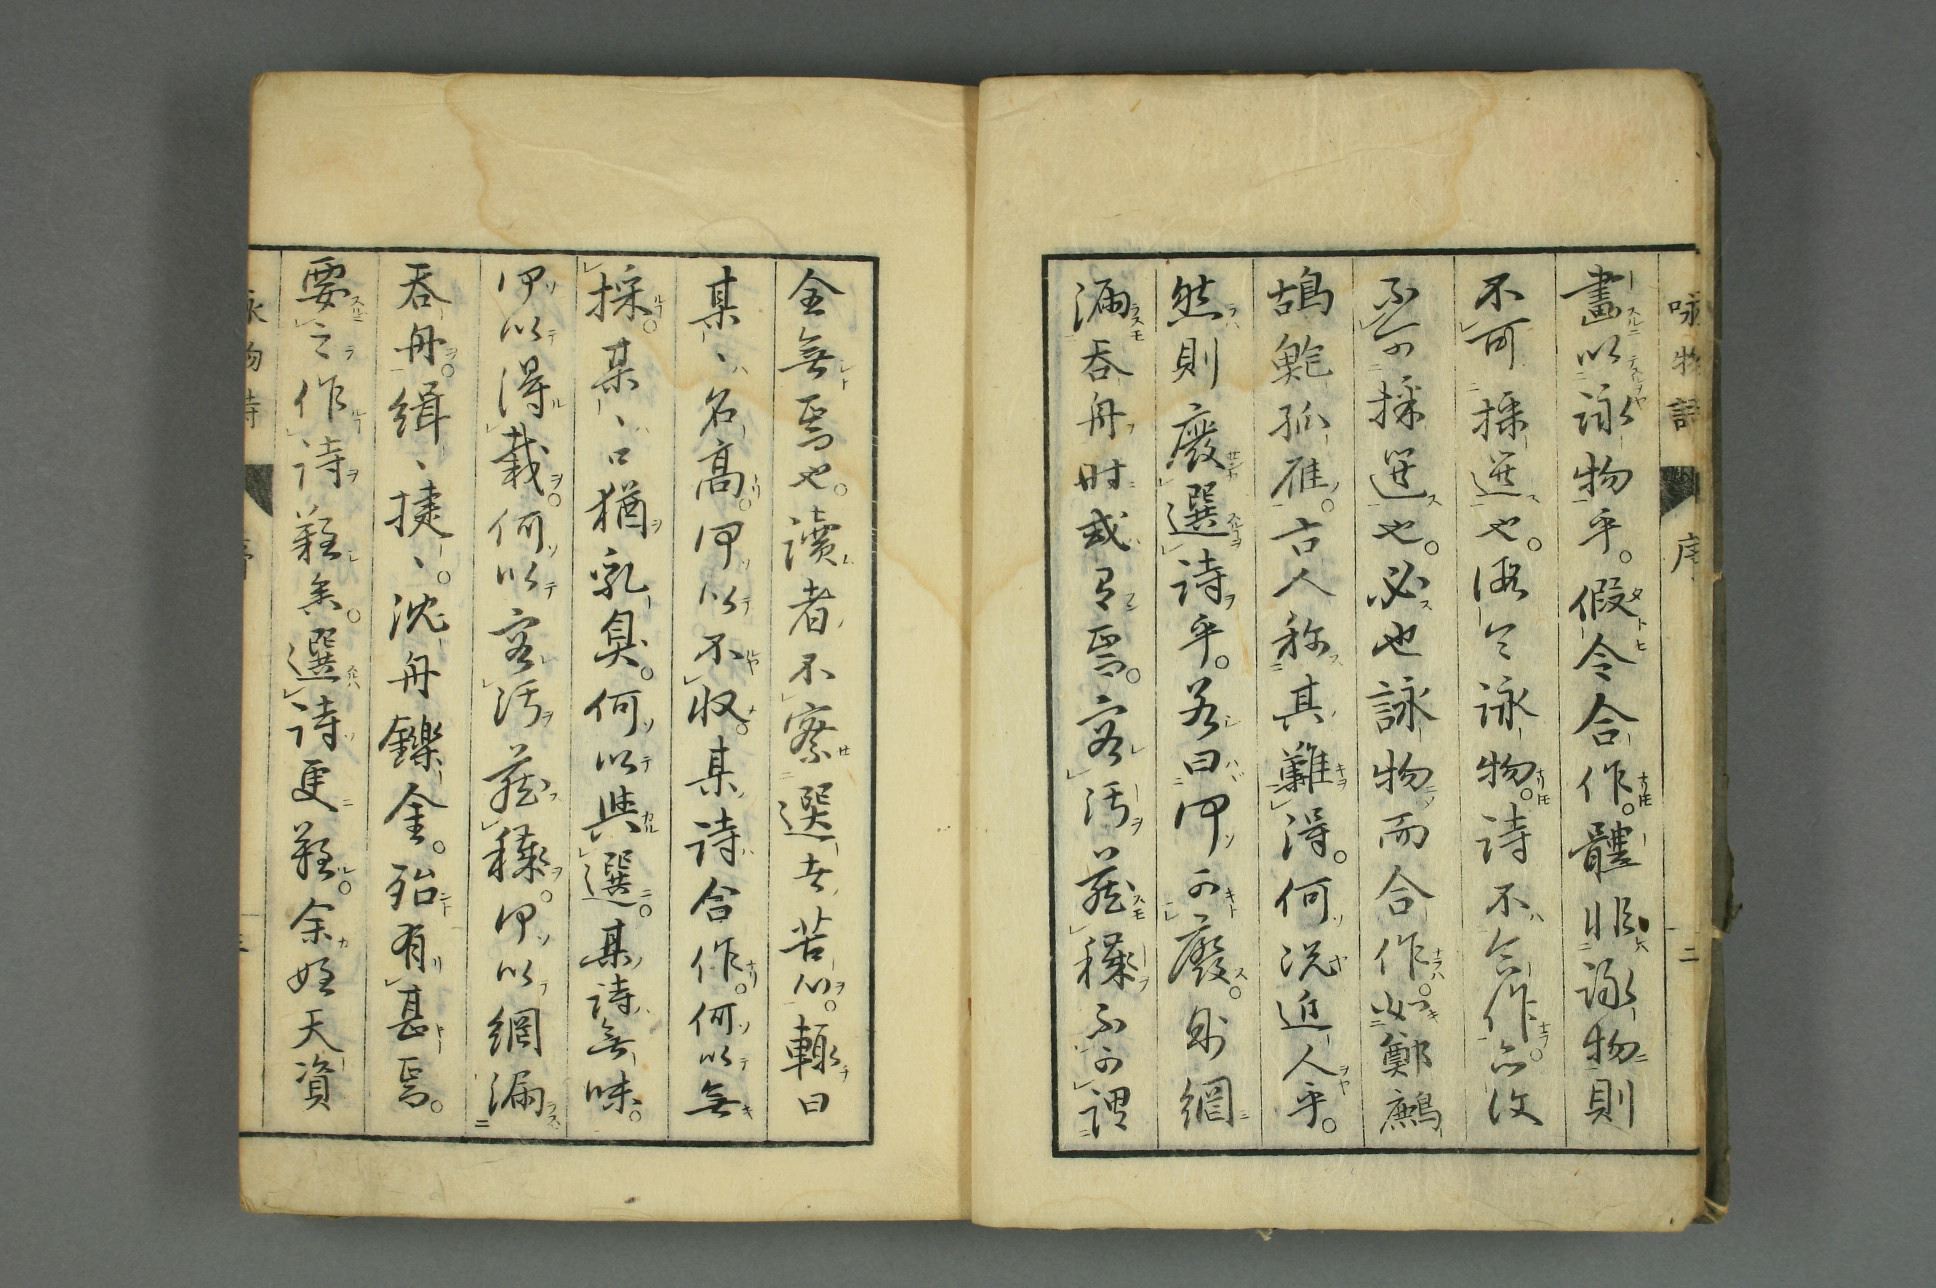 咏物詩 序 二
畫以詠物乎。假令合作。體非詠物則
不可採選也。假令詠物。詩不合作亦復
不可採選也。必也詠物而合作。如鄭鷓
鴣鮑孤雁。古人称其難得。何况近人乎。
然則廢選詩乎。若曰何可廢。則網
漏吞舟时或有焉。容污蔵穢不可謂
全無焉也。讀者不察選者苦心。輙曰
某、名高。何以不收。某詩合作。何以無
採。某、口猶乳臭。何以與選。某詩無味。
何以得載。何以容污蔵穢。何以網漏
吞舟。緝、捷、。沈舟鑠金。殆有甚焉。
要之作詩難矣。選詩更難。余姪天資